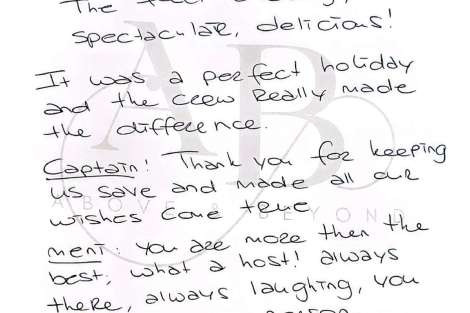 The
spectacular, delicious!
It was a perfect holiday
and the crew really made
the difference.
Captain! Thank you for keeping
us save and made all our
wishes come true
ABOVE & BEYOND
ment: you are more then the
best, what a host! always
there, always laughing, you